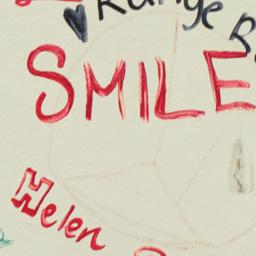 Range R
SMILE
Helen